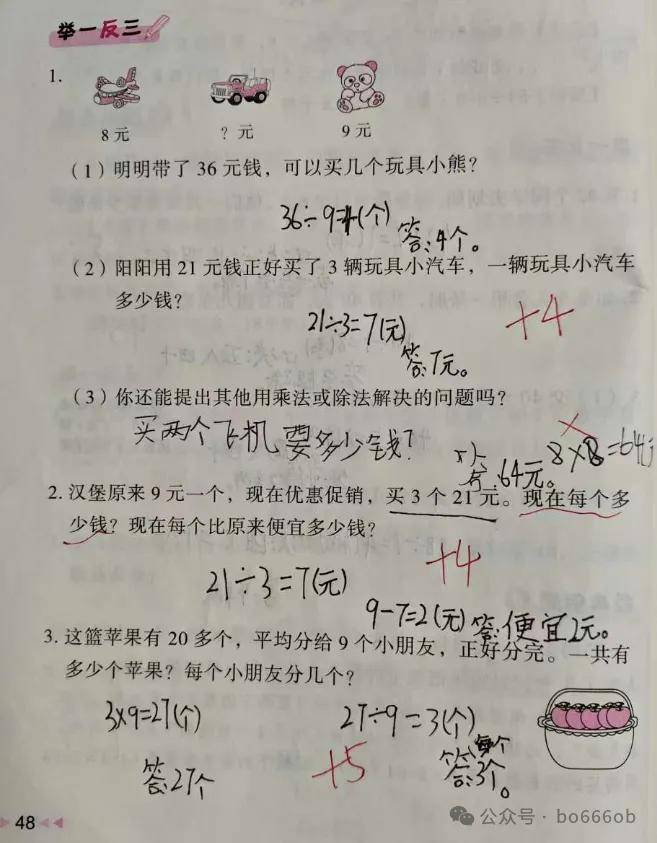 举一反三
1.
8元 ？元 9元
（1）明明带了36元钱，可以买几个玩具小熊？
36÷9=4(个)
答:4个。
（2）阳阳用21元钱正好买了3辆玩具小汽车，一辆玩具小汽车
多少钱？
21÷3=7(元)
+4
答:7元。
（3）你还能提出其他用乘法或除法解决的问题吗？
买两个飞机要多少钱？
8×8=64
答:64元。
2. 汉堡原来9元一个，现在优惠促销，买3个21元。现在每个多
少钱？现在每个比原来便宜多少钱？
21÷3=7(元)
+4
9-7=2(元) 答:便宜2元。
3. 这篮苹果有20多个，平均分给9个小朋友，正好分完。一共有
多少个苹果？每个小朋友分几个？
3×9=27(个) 27÷9=3(个)
答:27个 +5 答:每个3个。
48
公众号·bo666ob